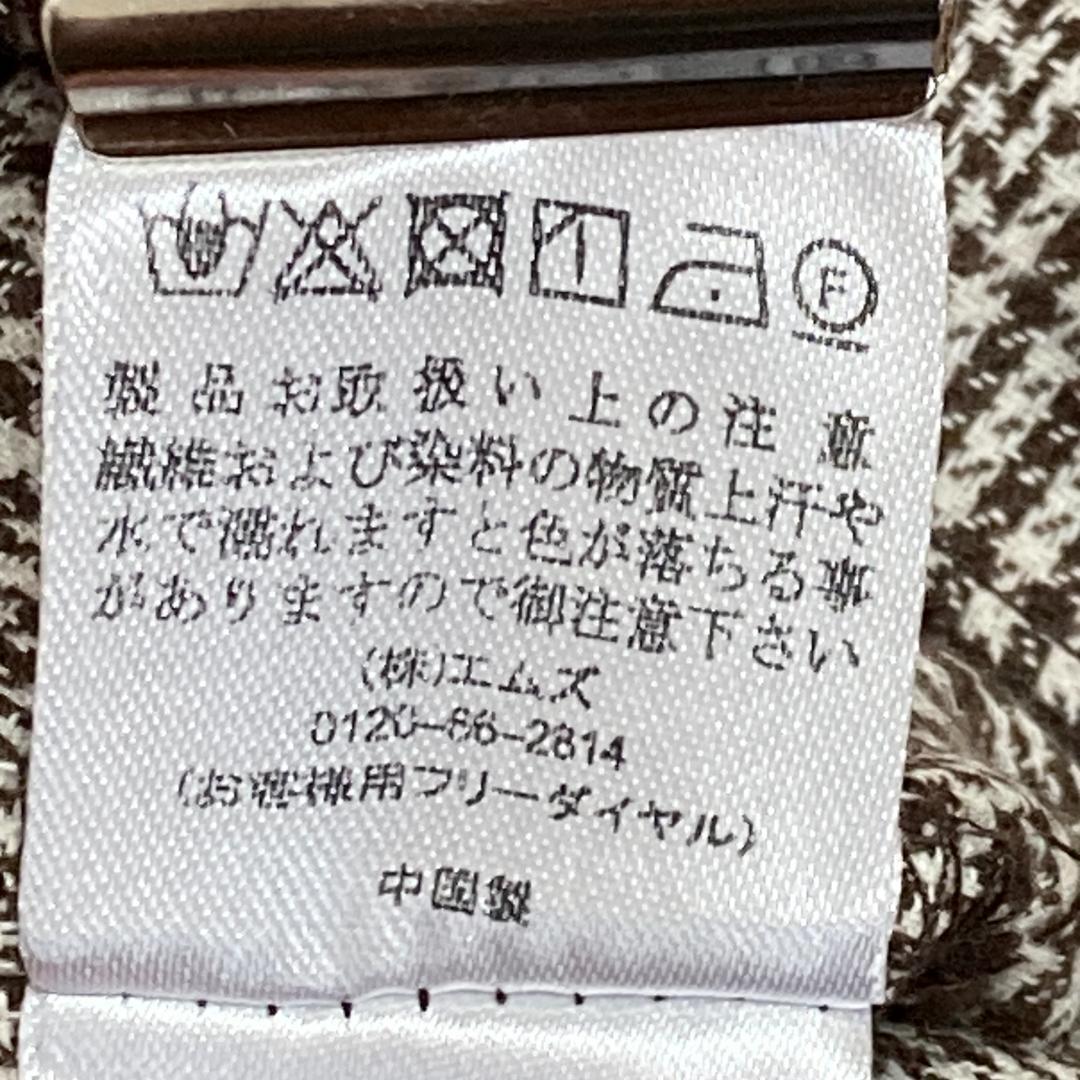 F
製品お取扱い上の注意
繊維および染料の物質上汗や
水で濡れますと色が落ちる事
がありますので御注意下さい
(株)エムズ
0120-66-2814
(お客様用フリーダイヤル)
中国製